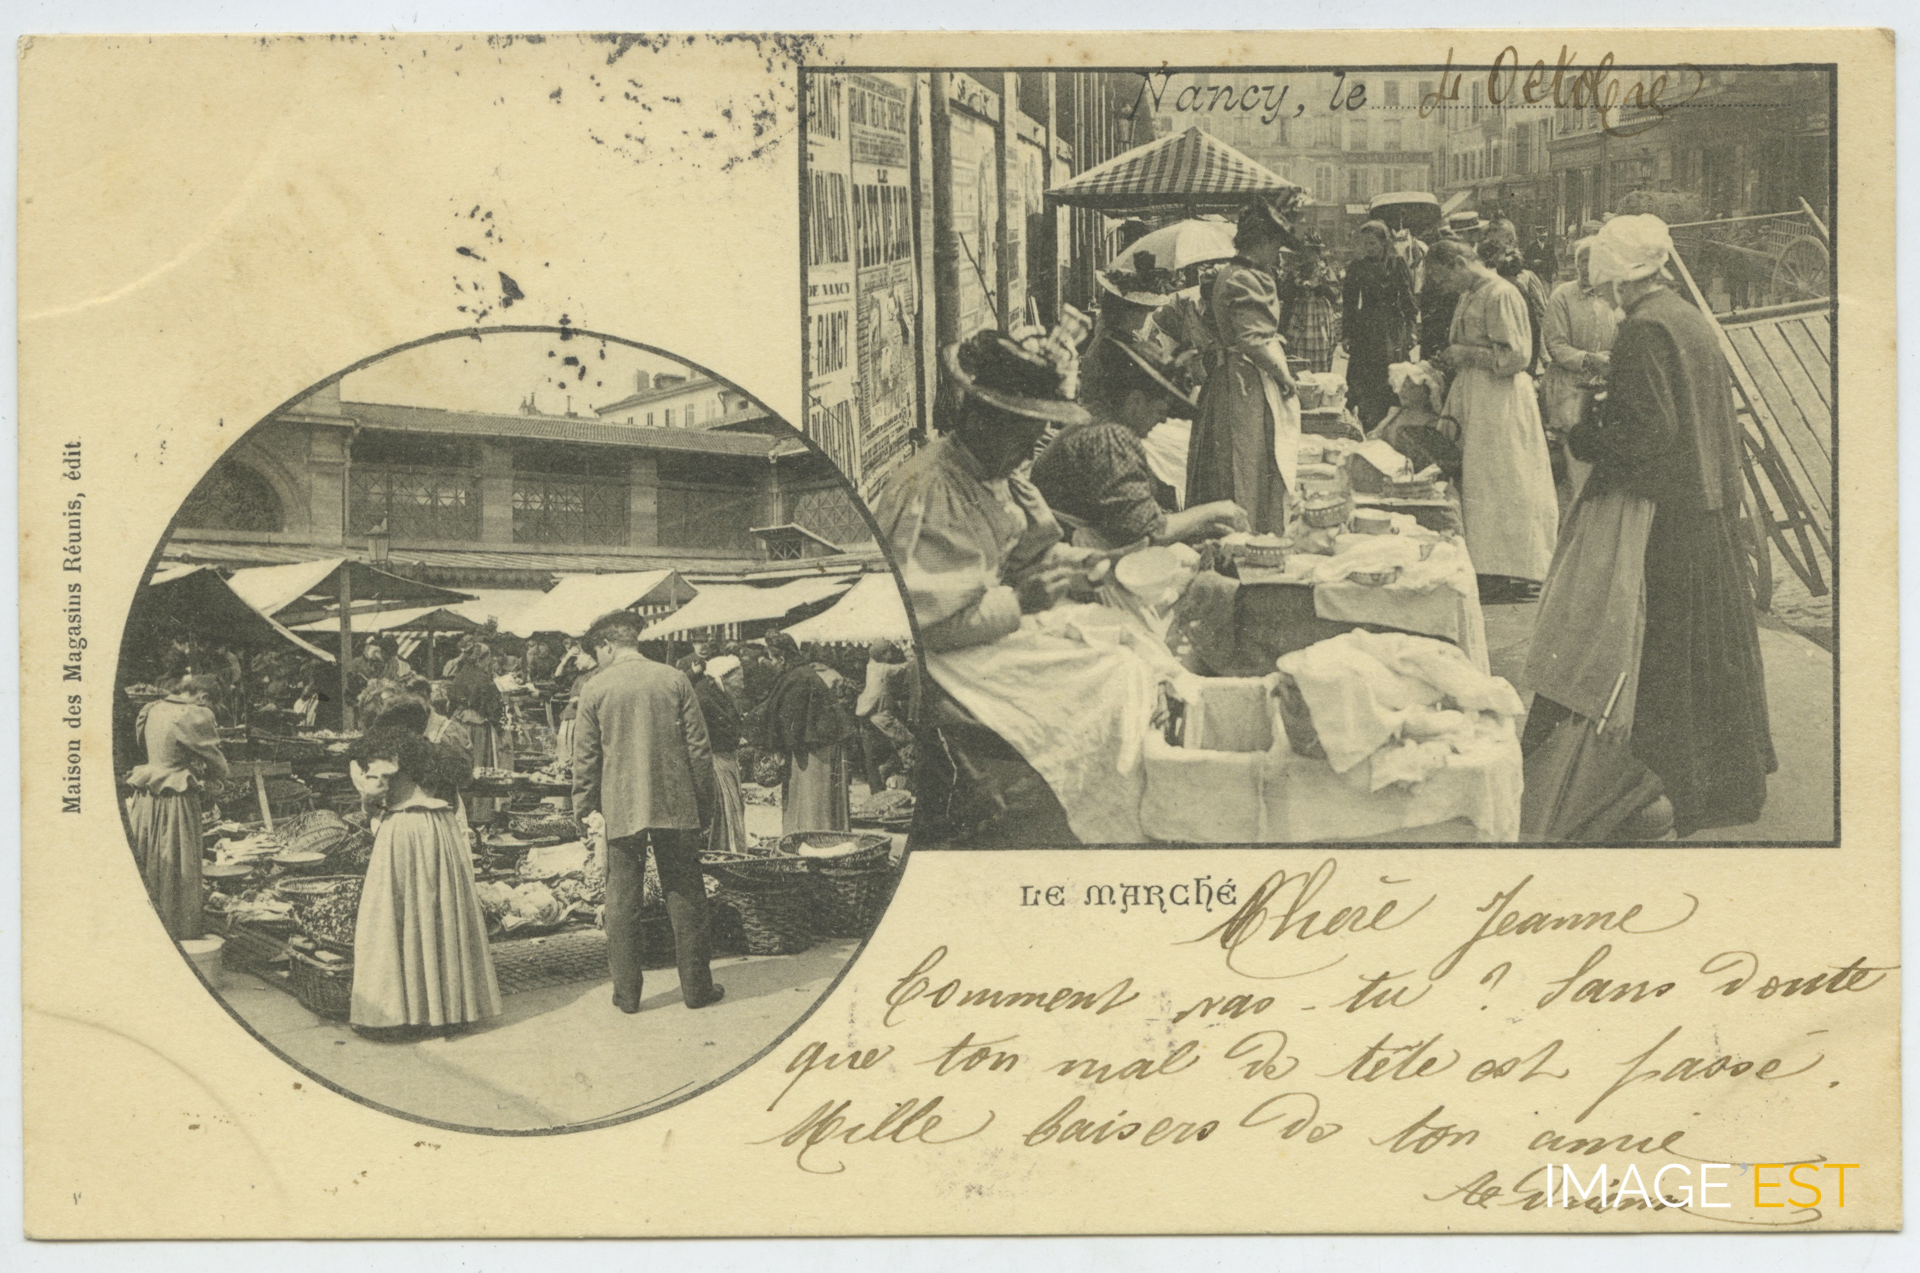 Nancy, le 4 Octobre
LE
PAYS DE L'OR
DE NANCY
NANCY
Maison des Magasins Réunis, édit.
LE MARCHÉ
Chère Jeanne
Comment vas-tu ? Sans doute
que ton mal de tête est passé.
Mille baisers de ton amie
IMAGE'EST